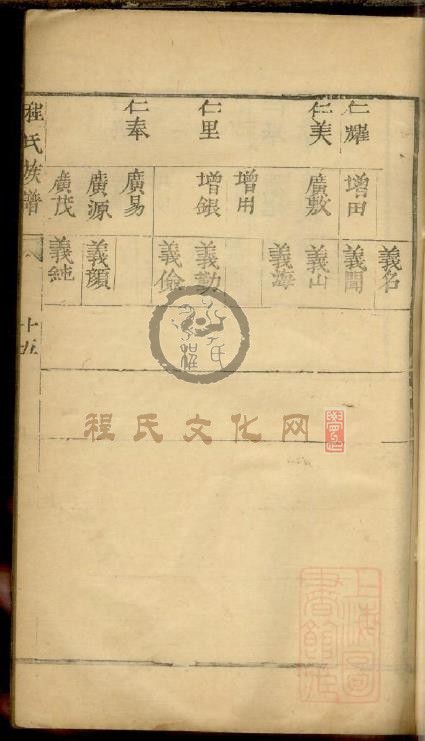 仁耀
仁美
仁里
仁奉
增田
廣敷
增用
增銀
廣易
廣源
廣茂
義名
義聞
義山
義海
義勤
義儉
義顔
義純
程氏族譜
十五
程氏文化网
上海圖書館藏